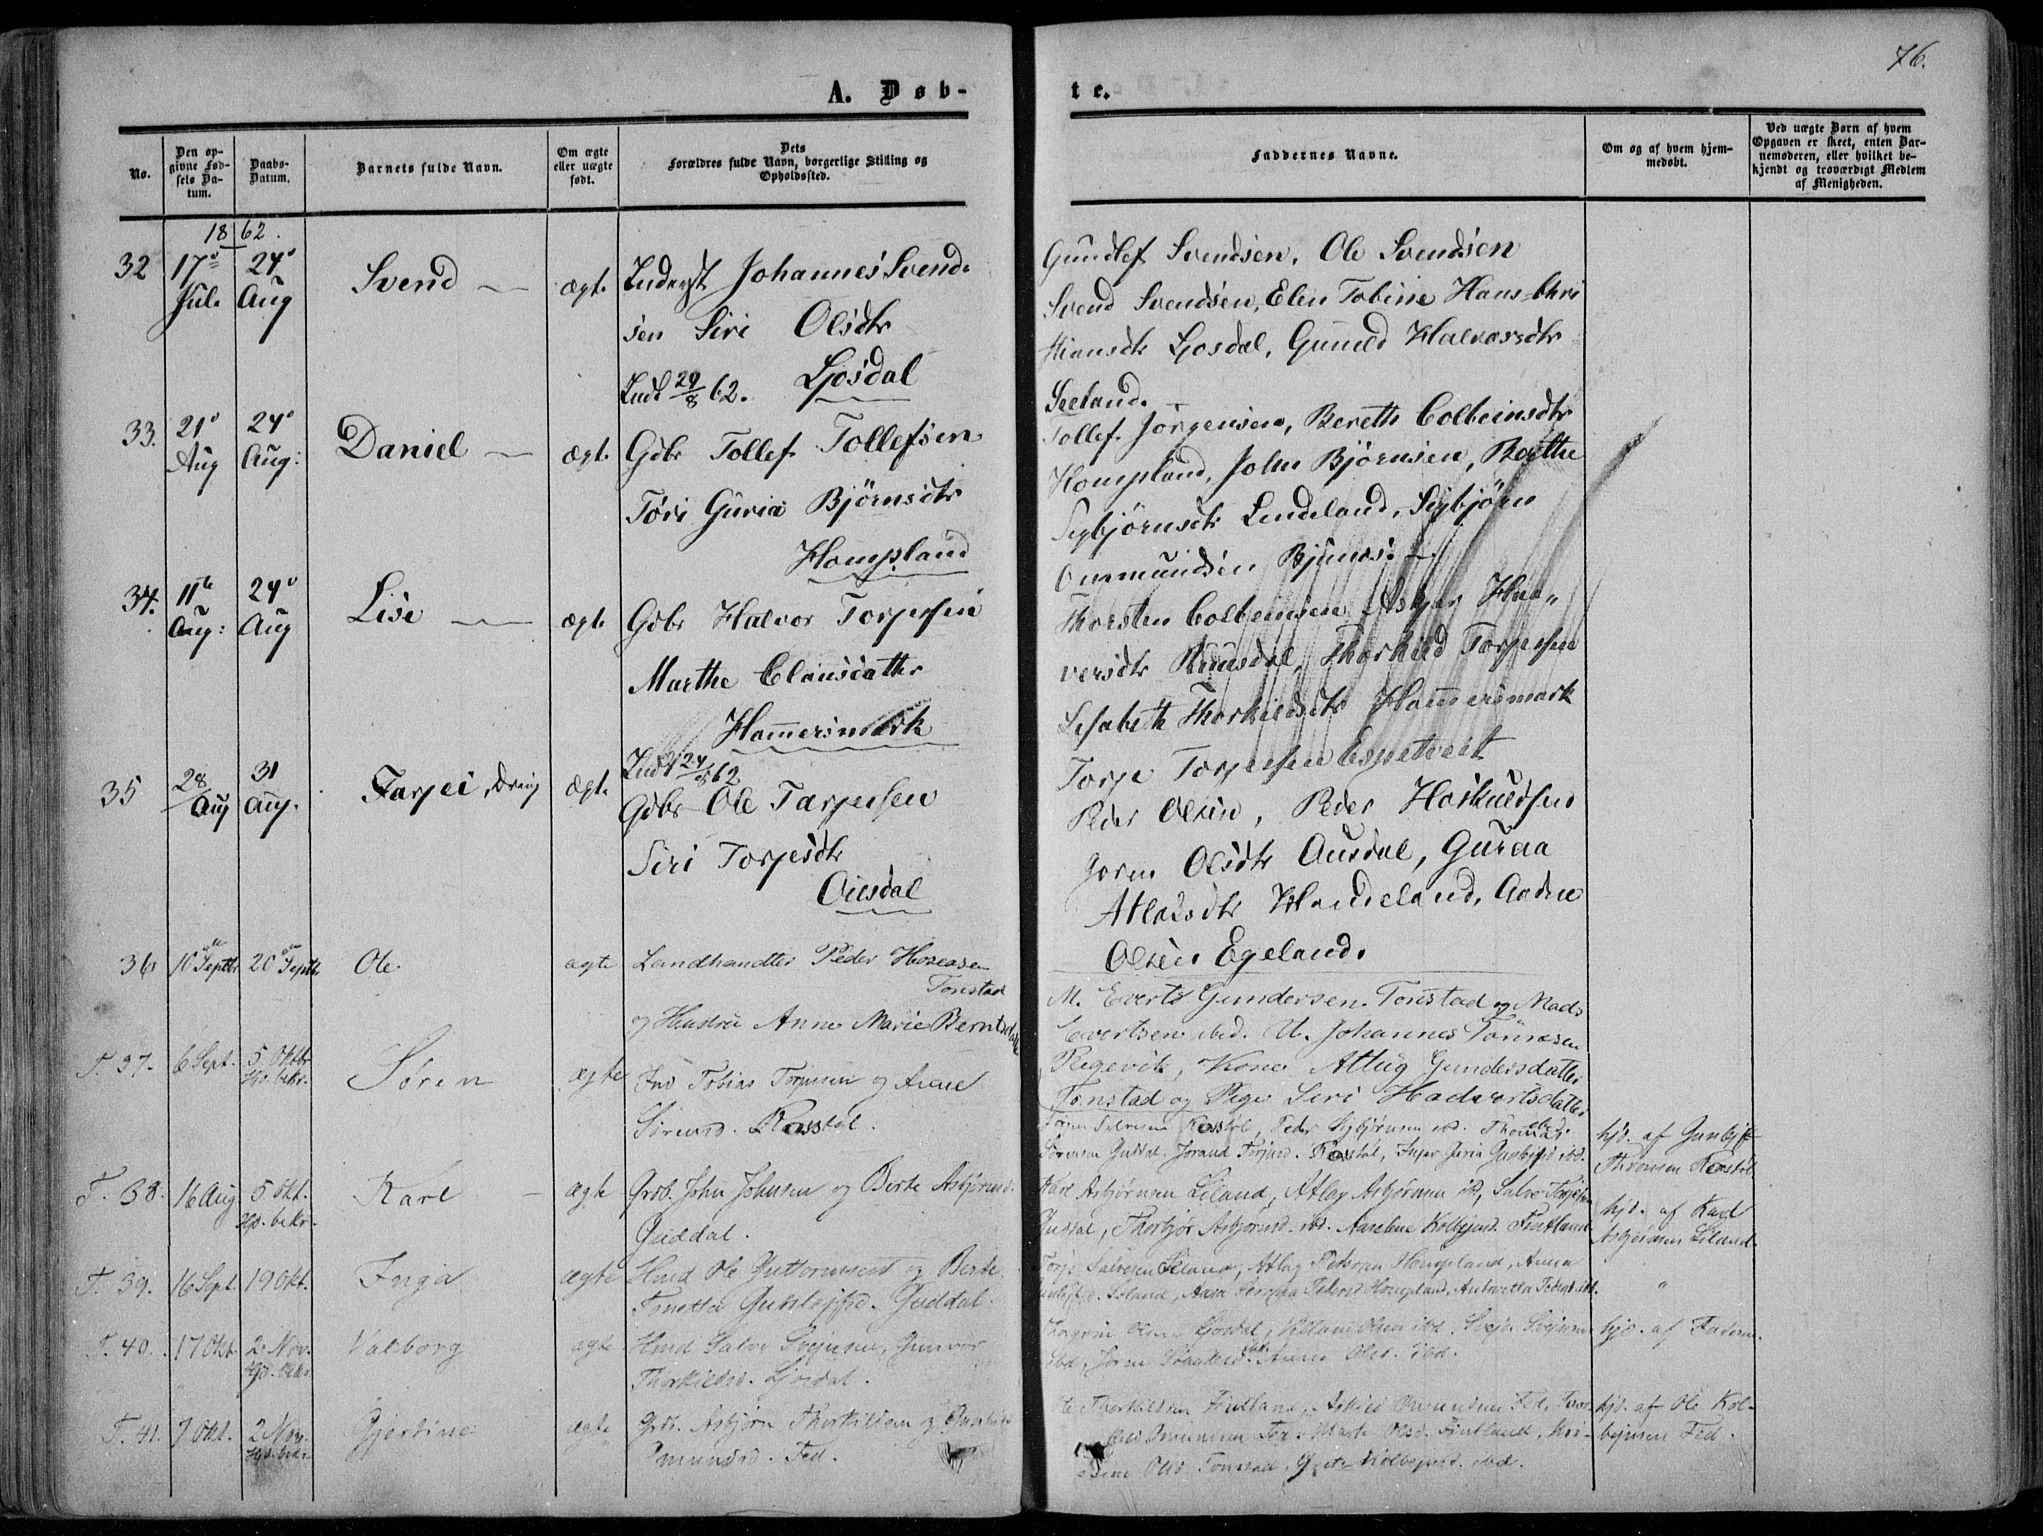 76.
A. Døb-
te.
No.
Den op-
givne Fød-
sels Da-
tum.
Daabs-
Datum.
Barnets fulde Navn.
Om ægte
eller uægte
født.
Dets
Forældres fulde Navn, borgerlige Stilling og
Opholdssted.
Faddernes Navne.
Om og af hvem hjem-
medøbt.
Ved uægte Børn af hvem
Opgaven er skeet, enten Bar-
nemoderen, eller hvilket be-
kjendt og troværdigt Medlem
af Menigheden.
1862.
32 17de Jul. 24de Aug Svend ægte Inderst Johannes Svend-
sen Siri Olsdtr
Ind 29/8 62. Ljosdal
Gundlef Svendsen, Ole Svendsen
Svend Svendsen, Elen Tobine Hans-Chri
stiansdtr Ljosdal, Guneld Halvorsdtr
Seeland.
33. 21 Aug 24 Aug: Daniel ægte Gdbr Tollef Tollefsen
Tori Guria Bjørnsdtr
Hompland
Tollef Jørgensen, Bereth Colbeinsdtr
Hompland, John Bjørnsen, Berthe
Sigbjørnsdtr Lindeland, Sigbjørn
Ommundsen Bjunes.
34. 11te Aug: 24 Aug Lise ægte Gdbr Halvor Torjesen
Marthe Clausdatter
Hammersmark
Ind 24/8 62
Thorsten Colbensen, Asbjør Haa-
versdtr Kunsdal, Thorkild Torjesen
Lisabeth Thorkildsdtr Hammersmark
Torje Torjesen Espetveit
35 28 Aug 31 Aug. Tarjei, Dreng ægte Gdbr Ole Tarjersen
Siri Torjesdtr
Ousdal
Peder Olsen, Peder Hoskuldsen
Joren Olsdtr Ousdal, Guraa
Atlaksdtr Haudeland, Aaden
Olsen Egeland.
36 10de Septbr 20de Septbr Ole ægte Landhandler Peder Hoseasen
Tonstad
og Hustru Anne Marie Berntsdatter
M. Everts Gundersen Tonstad og Mads
Evertsen ibd. U. Johannes Tønnesen
Regevik, Kone Atlag Gundersdatter
Tonstad og Pige Siri Hadvortsdatter
T. 37. 6 Sept. 5 Oktbr Hp. bekr. Søren ægte Ind Tobias Torjusen og Anne
Sørensd. Rosstøl.
Søren Salvesen Rosstøl, Peder Sigbjørnsen ibd. Thomas
Sørensen Guddal. Jorand Torjusd. Rosstøl, Inger Juria Gunlefsd ibd.
hjd. af Gunleif
Thronsen Rosstøl
T. 38. 16 Aug 5 Okt. Hp. bekr. Karl ægte Grdb. John Johnsen og Berte Asbjørnsd.
Guddal.
Karl Asbjørnsen Liland, Atlag Asbjørnsen ib, Salve Torjesen
Guddal, Thorbjør Asbjørnsd. ibd. Aasebue Kolbejnsd. Fintland
hjd. af Karl
Asbjørnsen Liland.
T. 39. 16 Sept. 19 Okt. Inga ægte Hmd Ole Guttormsen og Berte
Tonetta Gunleifsd. Guddal.
Torje Salvesen Liland, Atlag Pedersen Hompland, Anna
Gunleifsd. Liland, Aasa Serina Pedersd Hompland, Antonetta Pedersd ibd.
"
T. 40. 17 Okt. 2 Nov. Hp. bekr. Valborg ægte Hmd Salve Svejnsen, Gunvor
Thorkildsd. Ljosdal.
Torgrim Olsen Ljosdal, Villum Olsen ibd. Svejn Svejnsen
ibd, Joren Svendsd ibd. Anna Olsd. ibd.
hjd. af Faderen.
T. 41. 7 Okt. 2 Nov. Hp. bekr. Gjertine ægte Grdb. Asbjørn Thorkildsen og
Omundsd. Fed.
Ole Thorkildsen Fintland, Askild Omundsen Fed, Tore
Omundsen Fed. Marte Olsd. Fintland, Kri-
stine Olsd. Tonstad, Grete Kolbejnsd. ibd.
hjd. af Ole Kol-
bejnsen Fed.